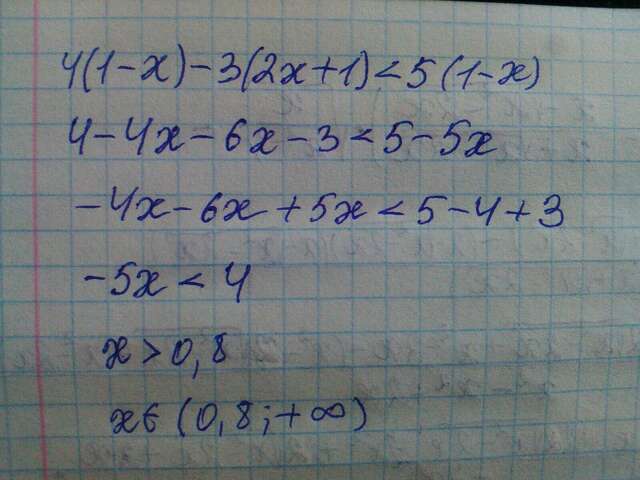 4(1-x)-3(2x+1)<5(1-x)
4-4x-6x-3<5-5x
-4x-6x+5x<5-4+3
-5x<4
x>0,8
x∈(0,8;+∞)